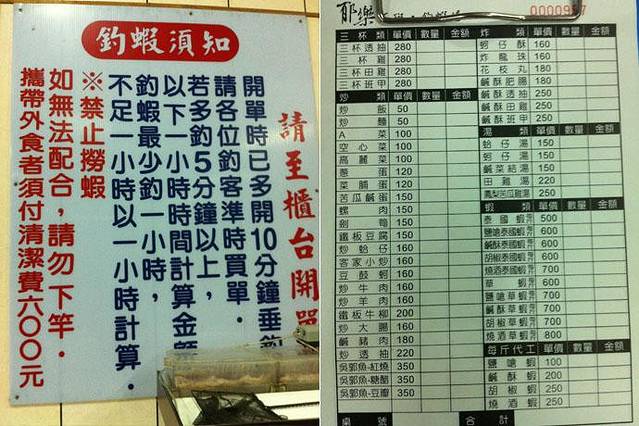 釣蝦須知
請至櫃台開
開單時已多開10分鐘垂釣
請各位釣客準時買單．
若多釣5分鐘以上，
以下一小時時間計算金額
釣蝦最少釣一小時，
不足一小時以一小時計算．
※禁止撈蝦
如無法配合，請勿下竿．
攜帶外食者須付清潔費六○○元
耶樂
三杯類 單價 數量 金額
三杯透抽 280
三杯雞 280
三杯田雞 280
三杯班甲 280
炒類 單價 數量 金額
炒飯 50
炒麵 50
A菜 100
空心菜 100
高麗菜 100
蔥蛋 120
菜脯蛋 120
苦瓜鹹蛋 120
螺肉 150
劍筍 150
鐵板豆腐 150
炒蛤仔 160
客家小炒 160
豆鼓蚵 160
炒牛肉 160
炒羊肉 160
鐵板牛柳 200
炒大腸 160
鹹豬肉 180
炒透抽 220
吳郭魚-紅燒 350
吳郭魚-糖醋 350
吳郭魚-豆瓣 350
桌號
炸類 單價 數量 金額
蚵仔酥 160
炸龍珠 160
花枝丸 180
鹹酥肥腸 180
鹹酥透抽 250
鹹酥田雞 250
鹹酥班甲 250
湯類 單價 數量 金額
蛤仔湯 150
蚵仔湯 150
鹹菜結湯 150
田雞湯 220
鳳梨苦瓜雞湯 250
蝦類 單價 數量 金額
泰國蝦 500
鹽嗆泰國蝦 600
鹹酥泰國蝦 600
胡椒泰國蝦 600
燒酒泰國蝦 700
草蝦 600
鹽嗆草蝦 700
鹹酥草蝦 700
胡椒草蝦 700
燒酒草蝦 800
每斤代工 單價 數量 金額
鹽嗆蝦 100
鹹酥蝦 200
胡椒蝦 250
燒酒蝦 250
合計